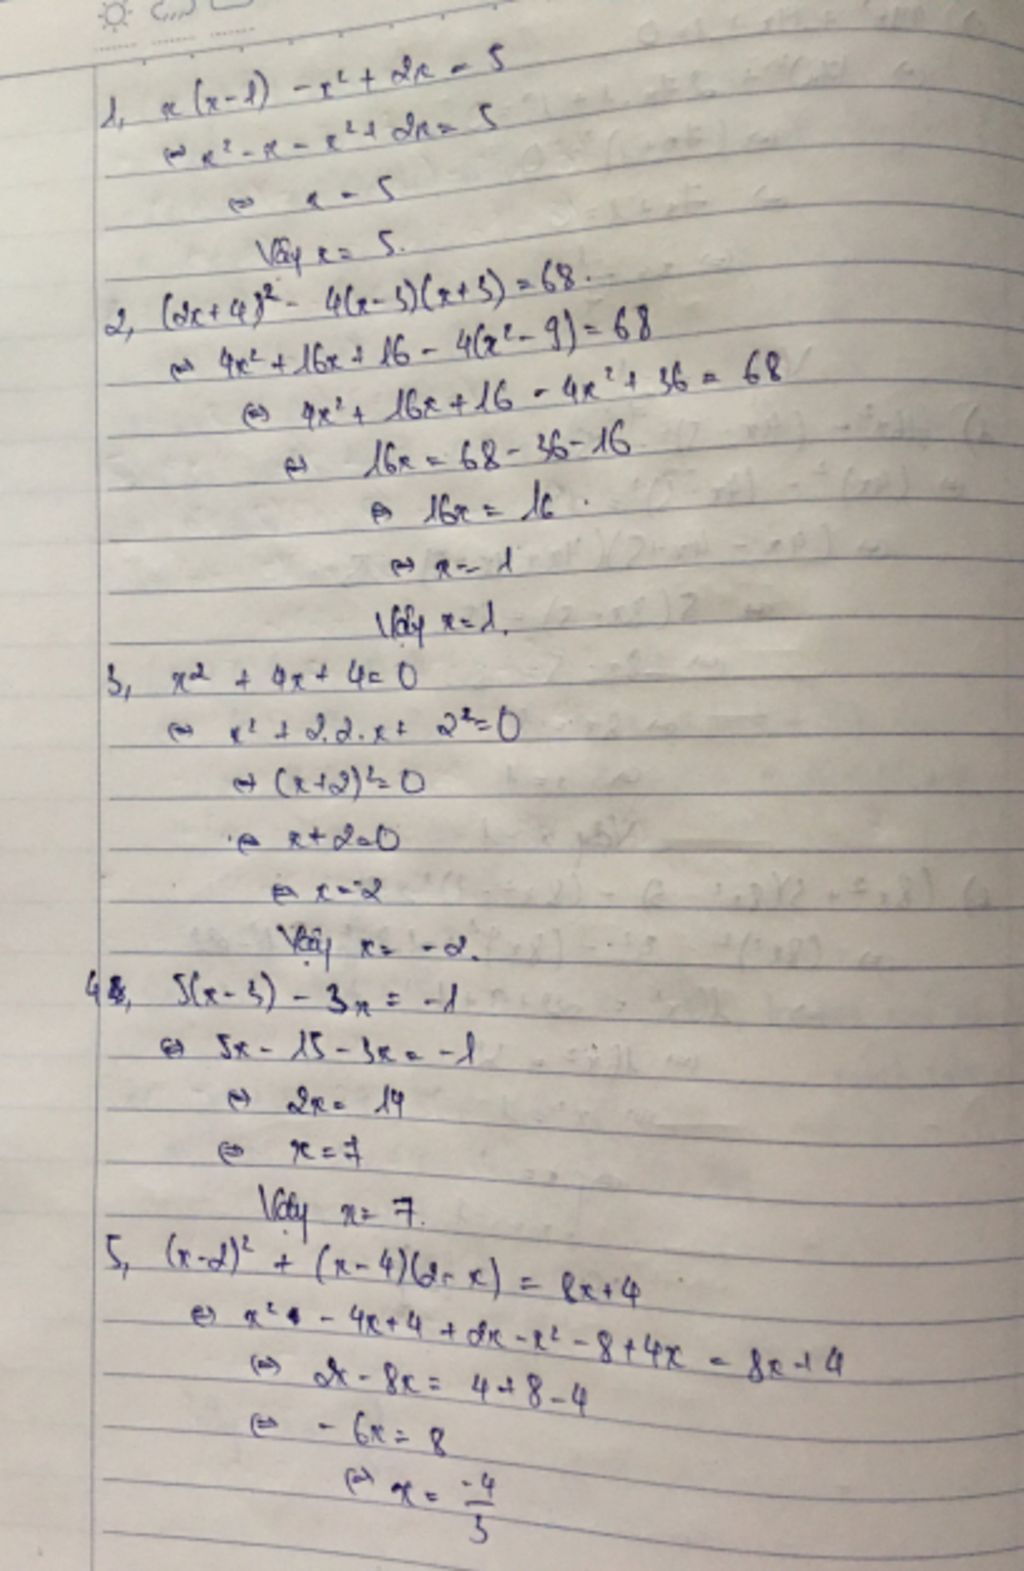 1, x(x-1) - x² + 2x = 5
⇔ x² - x - x² + 2x = 5
⇔ x = 5
Vậy x = 5.
2, (2x+4)² - 4(x-3)(x+3) = 68.
⇔ 4x² + 16x + 16 - 4(x² - 9) = 68
⇔ 4x² + 16x + 16 - 4x² + 36 = 68
⇔ 16x = 68 - 36 - 16
⇔ 16x = 16.
⇔ x = 1
Vậy x = 1.
3, x² + 4x + 4 = 0
⇔ x² + 2.2.x + 2² = 0
⇔ (x+2)² = 0
⇔ x + 2 = 0
⇔ x = -2
Vậy x = -2.
4, 5(x-3) - 3x = -1
⇔ 5x - 15 - 3x = -1
⇔ 2x = 14
⇔ x = 7
Vậy x = 7.
5, (x-2)² + (x-4)(2-x) = 8x+4
⇔ x² - 4x + 4 + 2x - x² - 8 + 4x = 8x + 4
⇔ 2x - 8x = 4 + 8 - 4
⇔ -6x = 8
⇔ x = -4/3